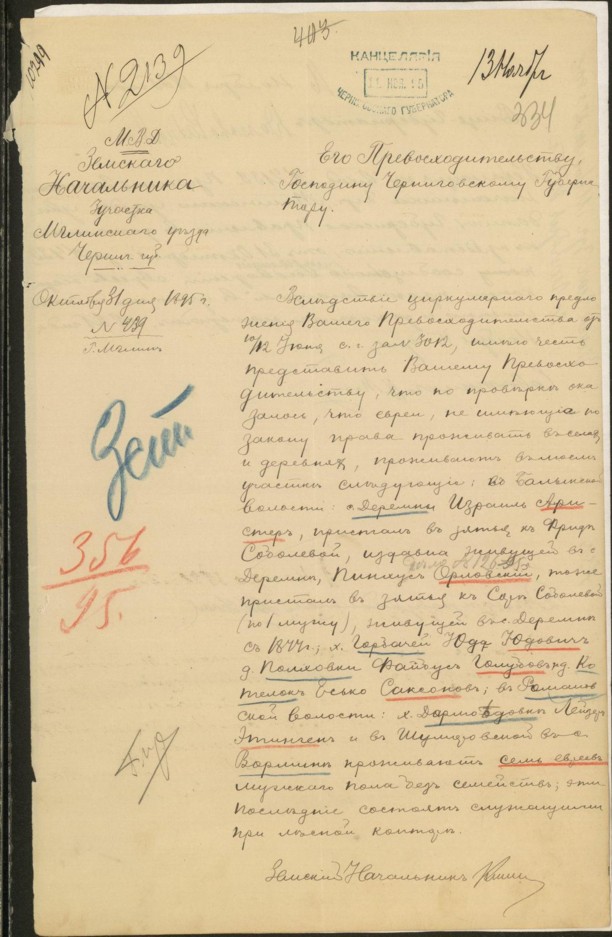 403.
N 2139
КАНЦЕЛЯРІЯ
ЧЕРНИГОВСКАГО ГУБЕРНАТОРА
13 Ноября
334
М В Д
Земскаго
Начальника
3 участка
Мглинскаго уѣзда
Черниг. губ.
Октября 31 дня 1895 г.
N 439
г. Мглинъ
Его Превосходительству,
Господину Черниговскому Губерна
тору.
Вслѣдствіе циркулярнаго предло
женія Вашего Превосходительства отъ
10/12 Іюня с. г. за N 3012, имѣю честь
представить Вашему Превосхо-
дительству, что по провѣркѣ ока
залось, что евреи, не имѣющіе по
закону права проживать въ селах
и деревнях, проживаютъ въ моемъ
участкѣ слѣдующіе: въ
волости: с. Деремни Израиль Ари-
стеръ, присталъ въ зятья къ
Соболевой, издавна живущей въ с.
Деремнѣ, Пинкусъ Орловскій, тоже
присталъ въ зятья къ Соболевой
(по мужу), живущей въ с. Деремнѣ
съ 1877 г.; х. Горбачей Юдовичъ
д. Полховки Файбусъ Голубовъ, д. Ко
телокъ Есько Саксоновъ; въ Романов
ской волости: х. Лейзеръ
Этингенъ и въ с.
Ворминѣ проживаютъ семь евреевъ
мужскаго пола безъ семействъ; эти
послѣдніе состоятъ служащими
при лѣсной конторѣ.
Земскій Начальникъ
356
95.